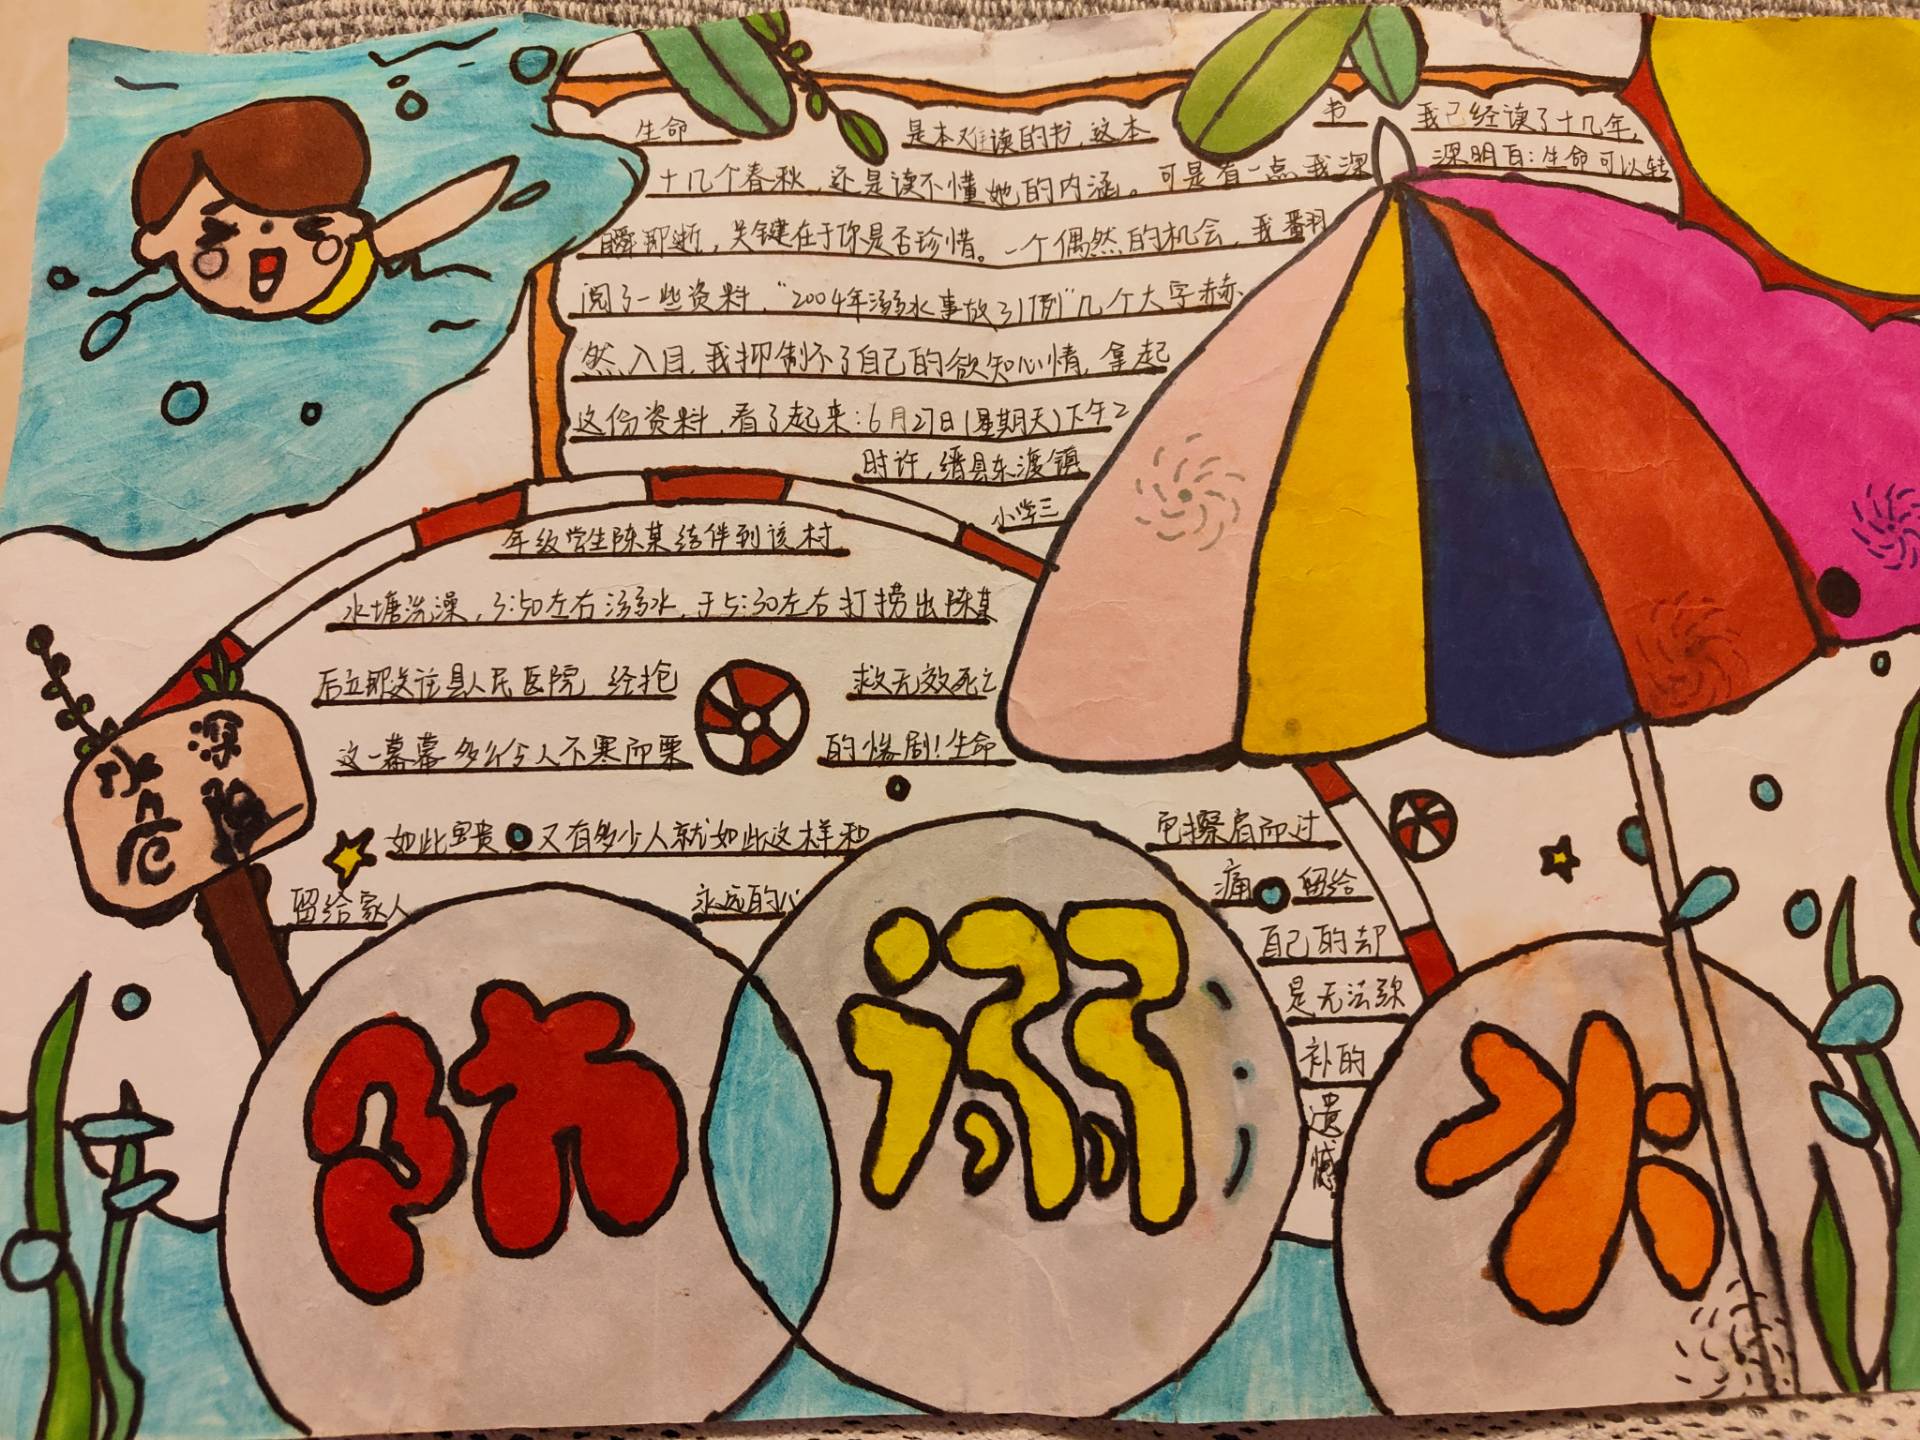 生命 是本难读的书,这本 书 我已经读了十几年,
十几个春秋,还是读不懂她的内涵。可是有一点我深 深明白:生命可以转
瞬即逝,关键在于你是否珍惜。一个偶然的机会,我翻
阅了一些资料,"2004年溺水事故31例"几个大字赫
然入目,我抑制不了自己的欲知心情,拿起
这份资料,看了起来:6月27日(星期天)下午2
时许,缙县东渡镇
小学三
年级学生陈某结伴到该村
水塘洗澡,3:50左右溺水,于5:30左右打捞出陈某
后立即送往县人民医院 经抢 救无效死亡
这一幕幕多么令人不寒而栗 的惨剧!生命
如此宝贵 又有多少人就如此这样和 它擦肩而过
留给家人 永远的心 痛 留给
自己的却
是无法弥
补的
遗
憾
水深
危险
防溺水